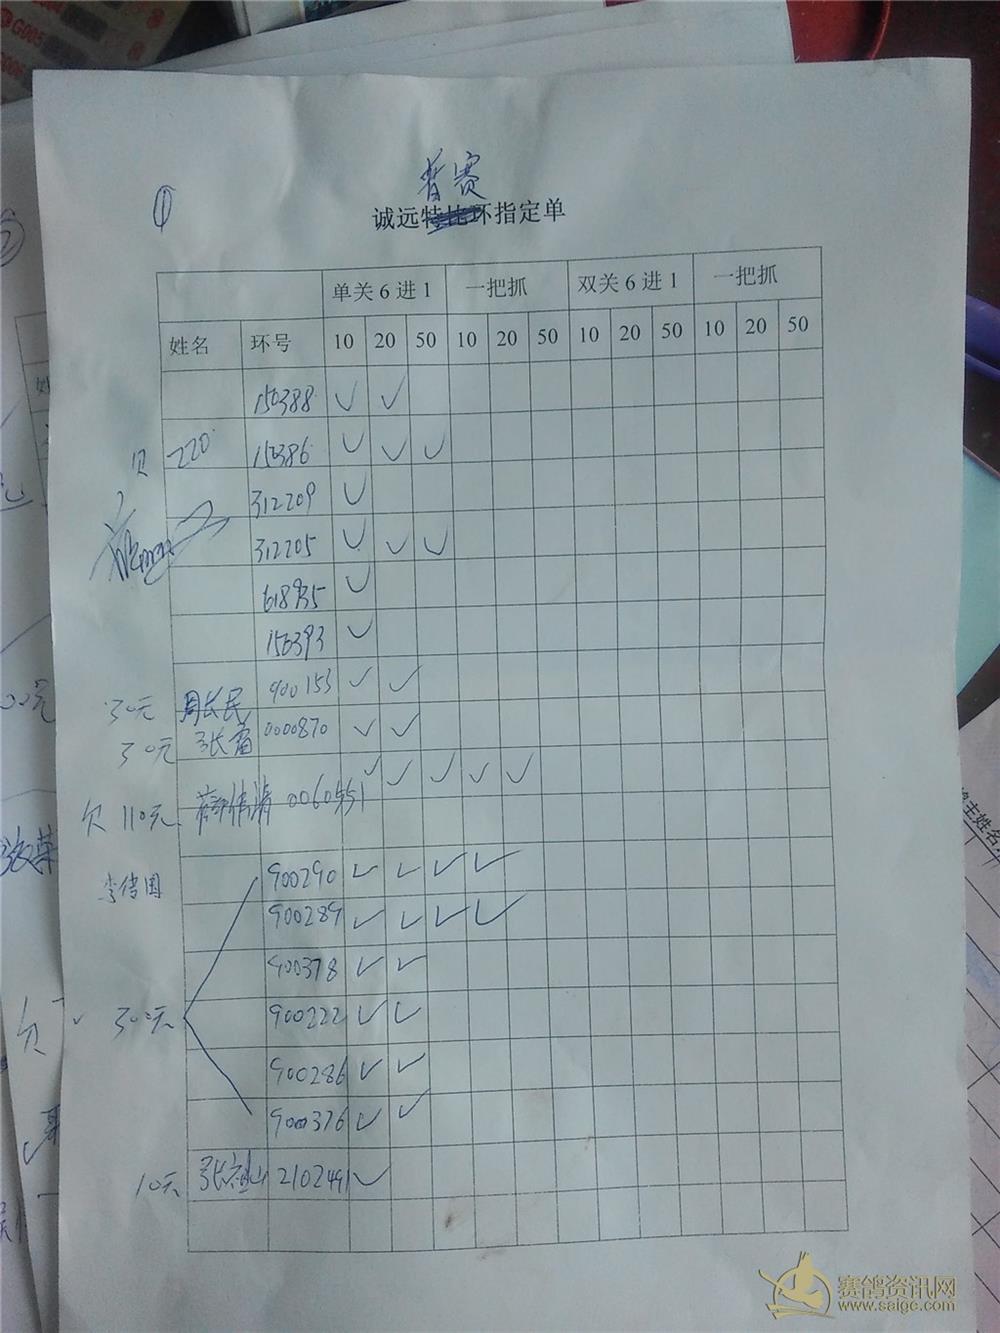 G005
①
普赛
诚远特比环指定单
单关6进1 一把抓 双关6进1 一把抓
姓名 环号 10 20 50 10 20 50 10 20 50 10 20 50
150388 ✓ ✓
欠 220 150386 ✓ ✓ ✓
312209 ✓
312205 ✓ ✓ ✓
618935 ✓
150393 ✓
30元 周长民 900153 ✓ ✓
30元 张富 0000870 ✓ ✓
欠 110元 薛伟清 0060551 ✓ ✓ ✓ ✓ ✓
李传国 900290 ✓ ✓ ✓ ✓
900289 ✓ ✓ ✓ ✓
900378 ✓ ✓
欠 300元 900222 ✓ ✓
900286 ✓ ✓
900376 ✓ ✓
10元 张祖山 2102491 ✓
赛鸽资讯网
www.saigc.com